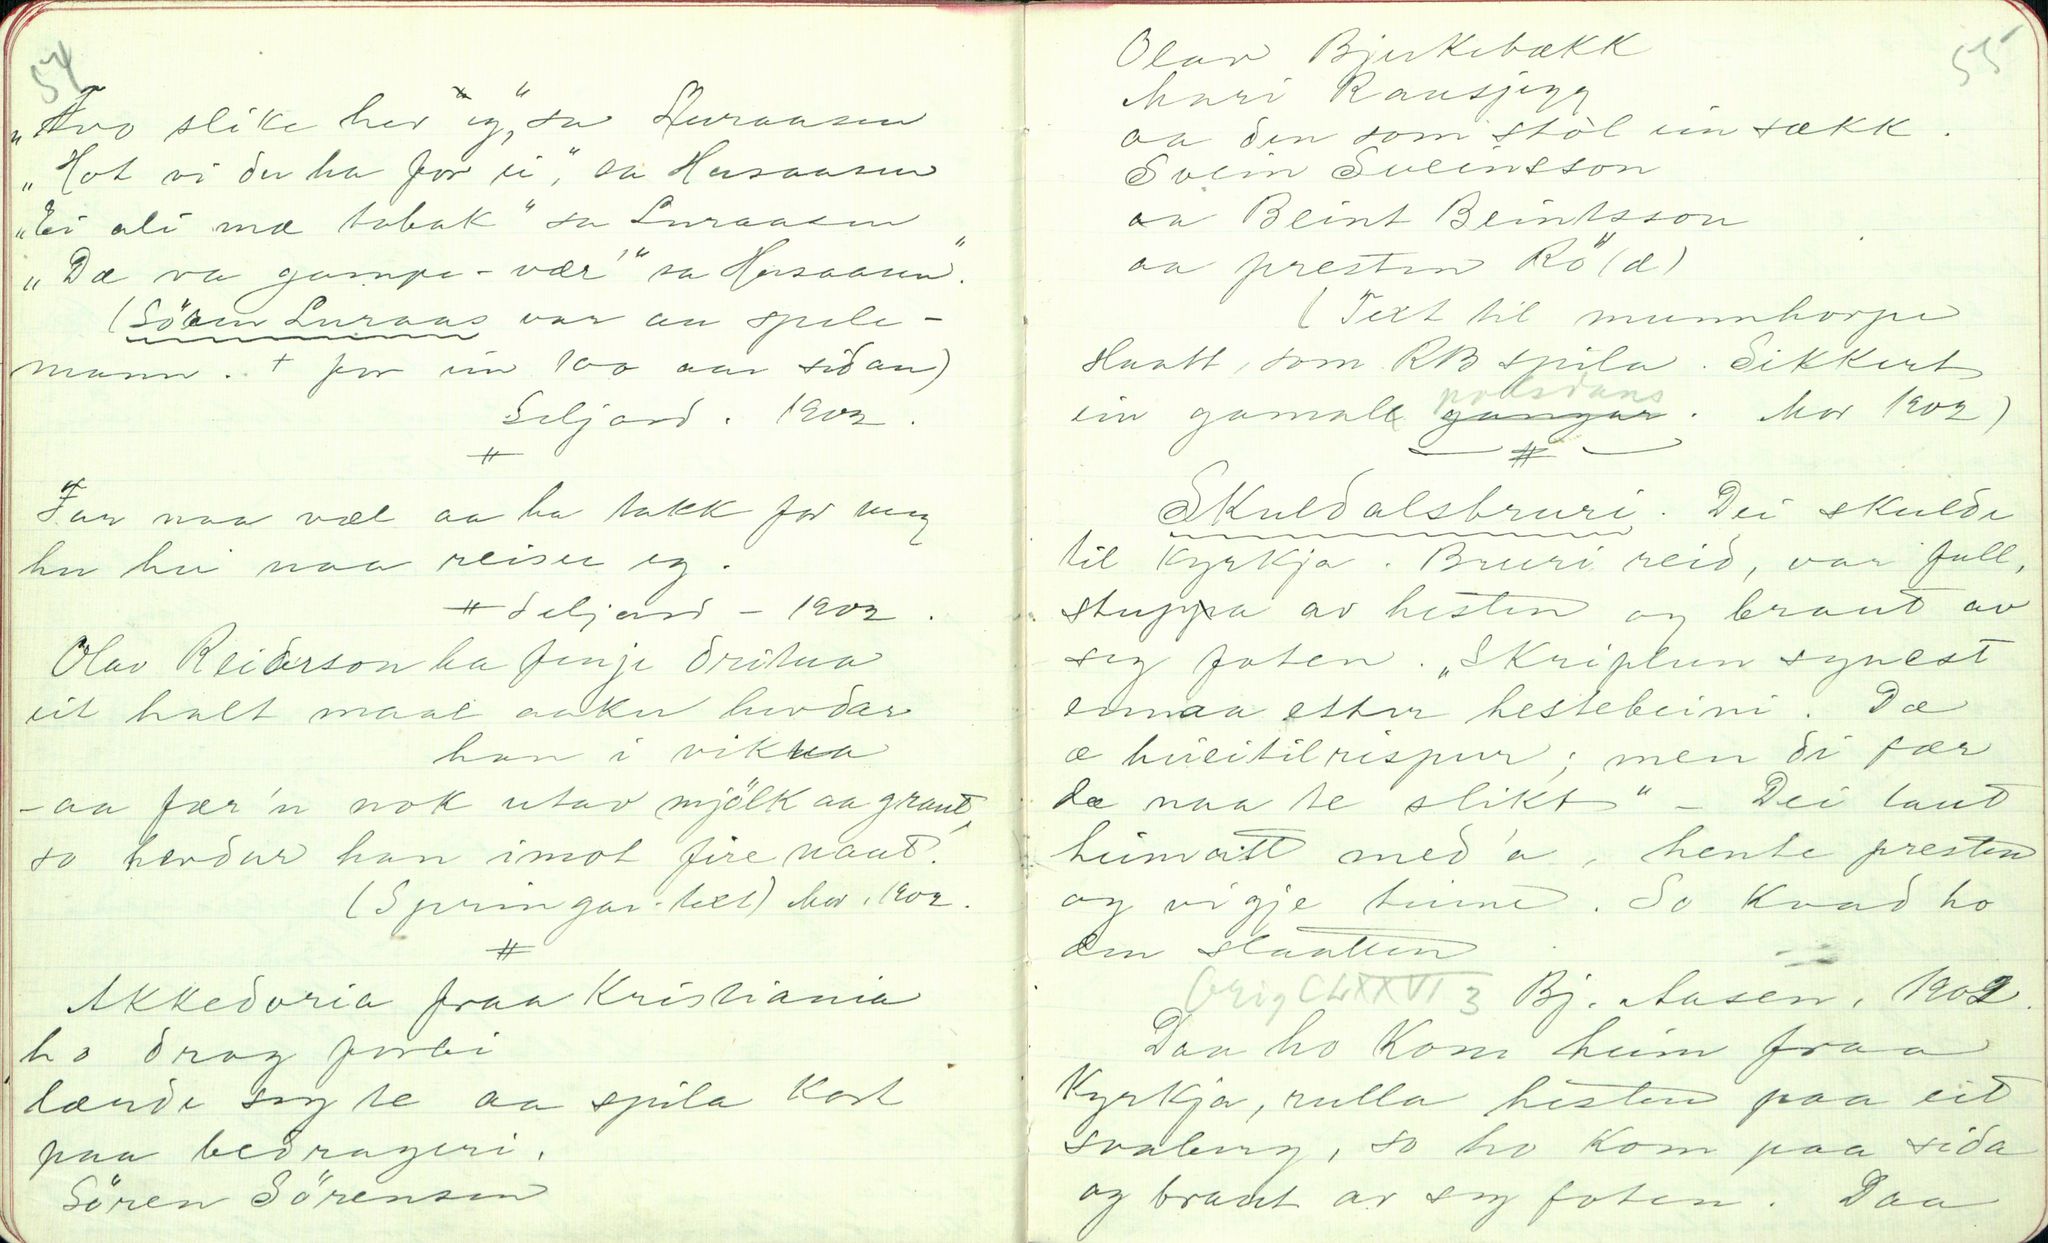 54
„Tvo slike her eg," sa Luraasen
„Hot vi du ha for ei," sa Hersaasen
„Ei ali mæ tobak" sa Luraasen
„Dæ va gampe-vær'" sa Hersaasen".
(Sören Luraas var au spele-
mann. + for ein 100 aar sidan)
Seljord. 1902.
#
Far naa væl aa ha takk for meg
her hei naa reiser eg.
# Seljord - 1902.
Olav Reiderson ha fenje dritua
eit halt maal aaker herdar
han i vikua
- aa fær'n nok utav mjölk aa graut,
so herdar han imot fire naut.
(Springar-text) Mor, 1902.
#
Akkedoria fraa Kristiania
ho drog forbi
lærde seg te aa spila kort
paa bedrageri.
Sören Sörensen
55
Olav Bjerkebækk
Mari Ransjegg
aa den som stòl ein sækk.
Svein Sveinsson
aa Beint Beintsson
aa presten Rö(d)
(Text til munnhorpe
slaatt, som RB spila. Sikkert
ein gamall gangar. Mor 1902)
polsdans
#
Skuldalsbruri. Dei skulde
til kyrkja. Bruri reid, var full,
stuppa av hesten og braut av
seg foten. „Skriplun synest
ennaa etter hestebeini. Dæ
æ kveitilrispur; men di fær
dæ naa te slikt" – Dei laut
heimatt med'a, hente presten
og vigje heime. So kvad ho
den slaatten
Orig CLXXVI 3 Bj. Aasen, 1902.
Daa ho kom heim fraa
kyrkja, rulla hesten paa eit
svaberg, so ho kom paa sida
og braut av seg foten. Daa